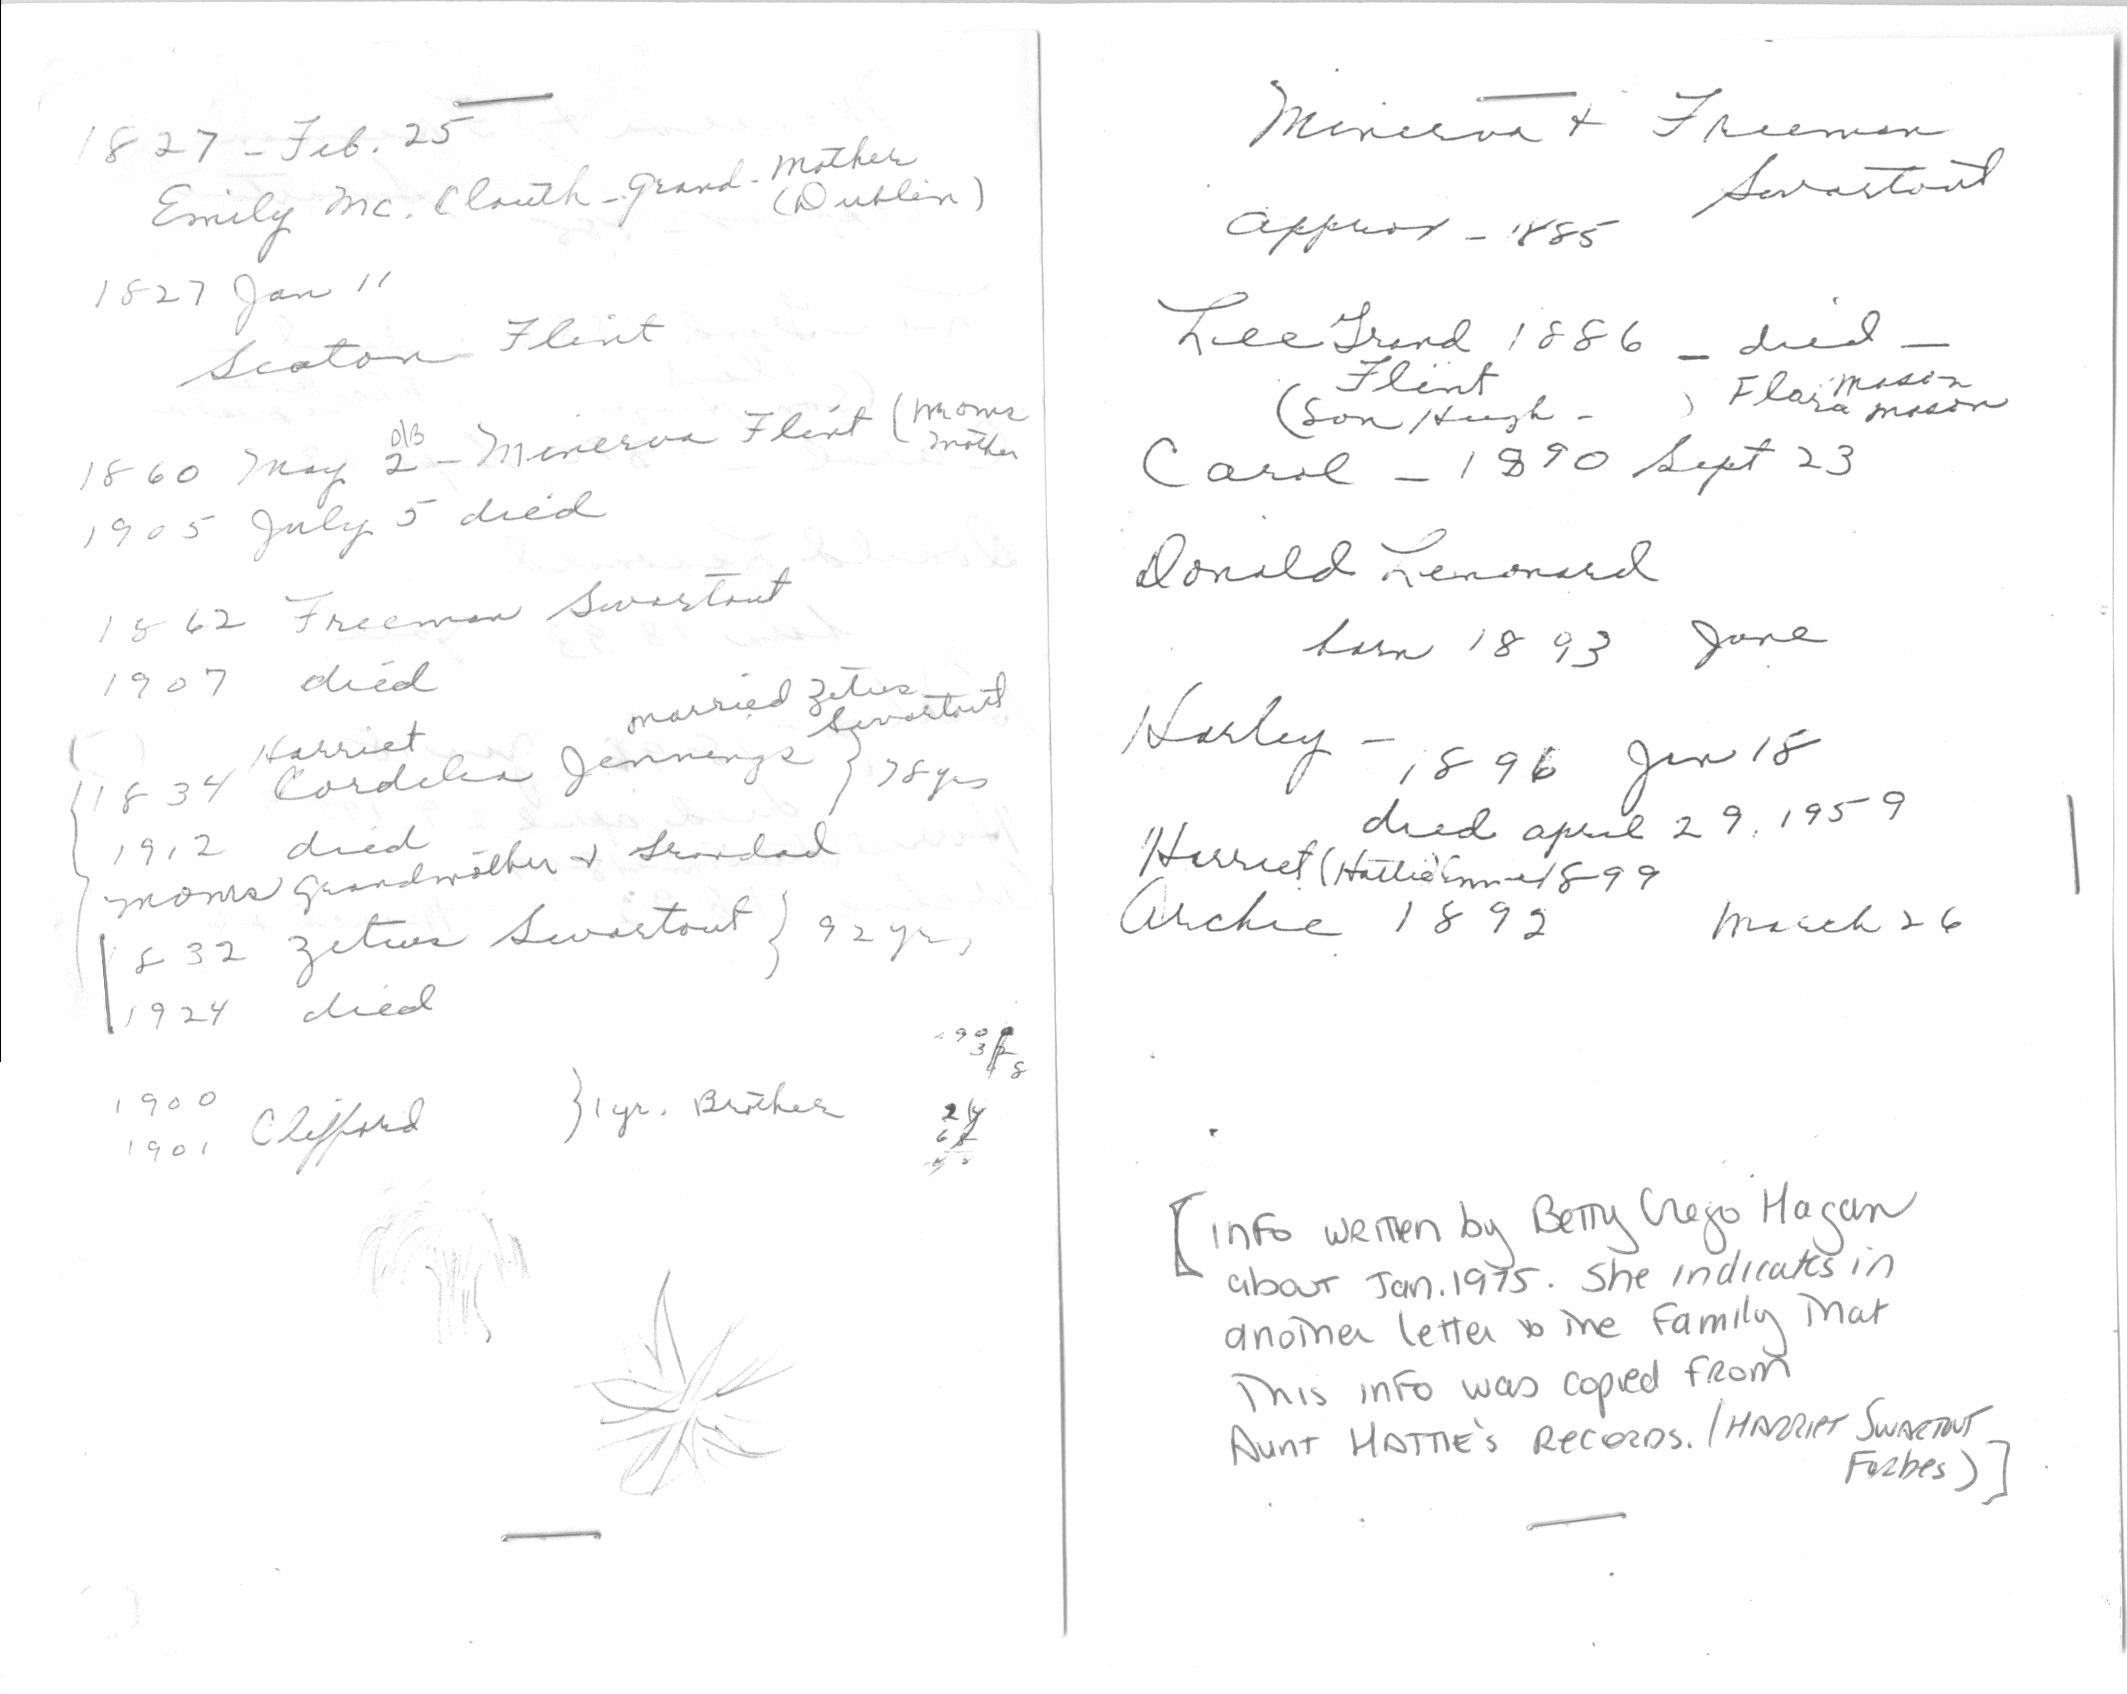 1827 - Feb. 25
Emily Mc. Clouth - Grand-Mother
(Dublin)
1827 Jan 11
Seaton Flint
1860 May 2 - Minerva Flint (Moms
Mother
1905 July 5 died
1862 Freeman Swartout
1907 died
married Zetus
Swartout
Harriet
1834 Cordelia Jennings } 78 yrs
1912 died
Moms Grandmother & Grandad
1832 Zetus Swartout } 92 yrs
1924 died
1900
Clifford } 1 yr. Brother
1901
Minerva & Freeman
Swartout
approx - 1885
LeeGrand 1886 - died -
Flint
(Son Hugh - ) Flora Mason
Mason
Carol - 1890 Sept 23
Donald Lenonard
born 1893 June
Harley -
1896 Jan 18
died april 29, 1959
Harriet (Hattie) 1899
Archie 1892 March 26
[Info written by Betty Crego Hagan
about Jan. 1975. She indicates in
another letter to the family that
This info was copied from
Aunt Hattie's Records. (Harriet Swartout
Forbes)]